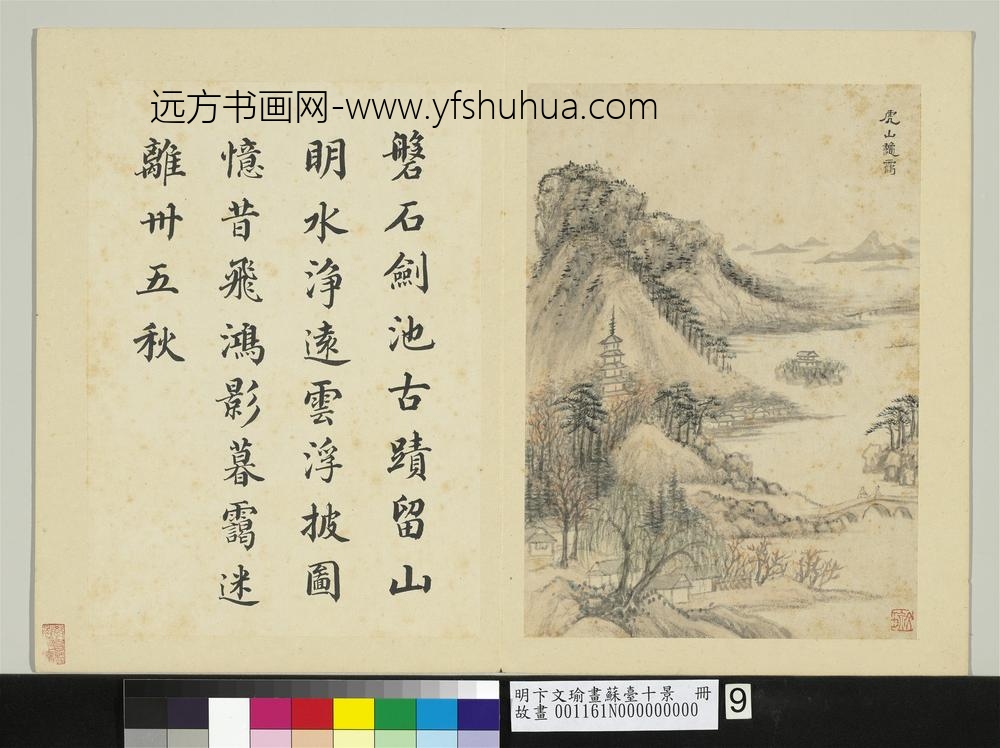 远方书画网-www.yfshuhua.com
虎山
磐石劍池古蹟留山
明水淨遠雲浮披圖
憶昔飛鴻影暮靄迷
離卅五秋
明卞文瑜畫蘇臺十景 冊
故畫 001161N000000000
9